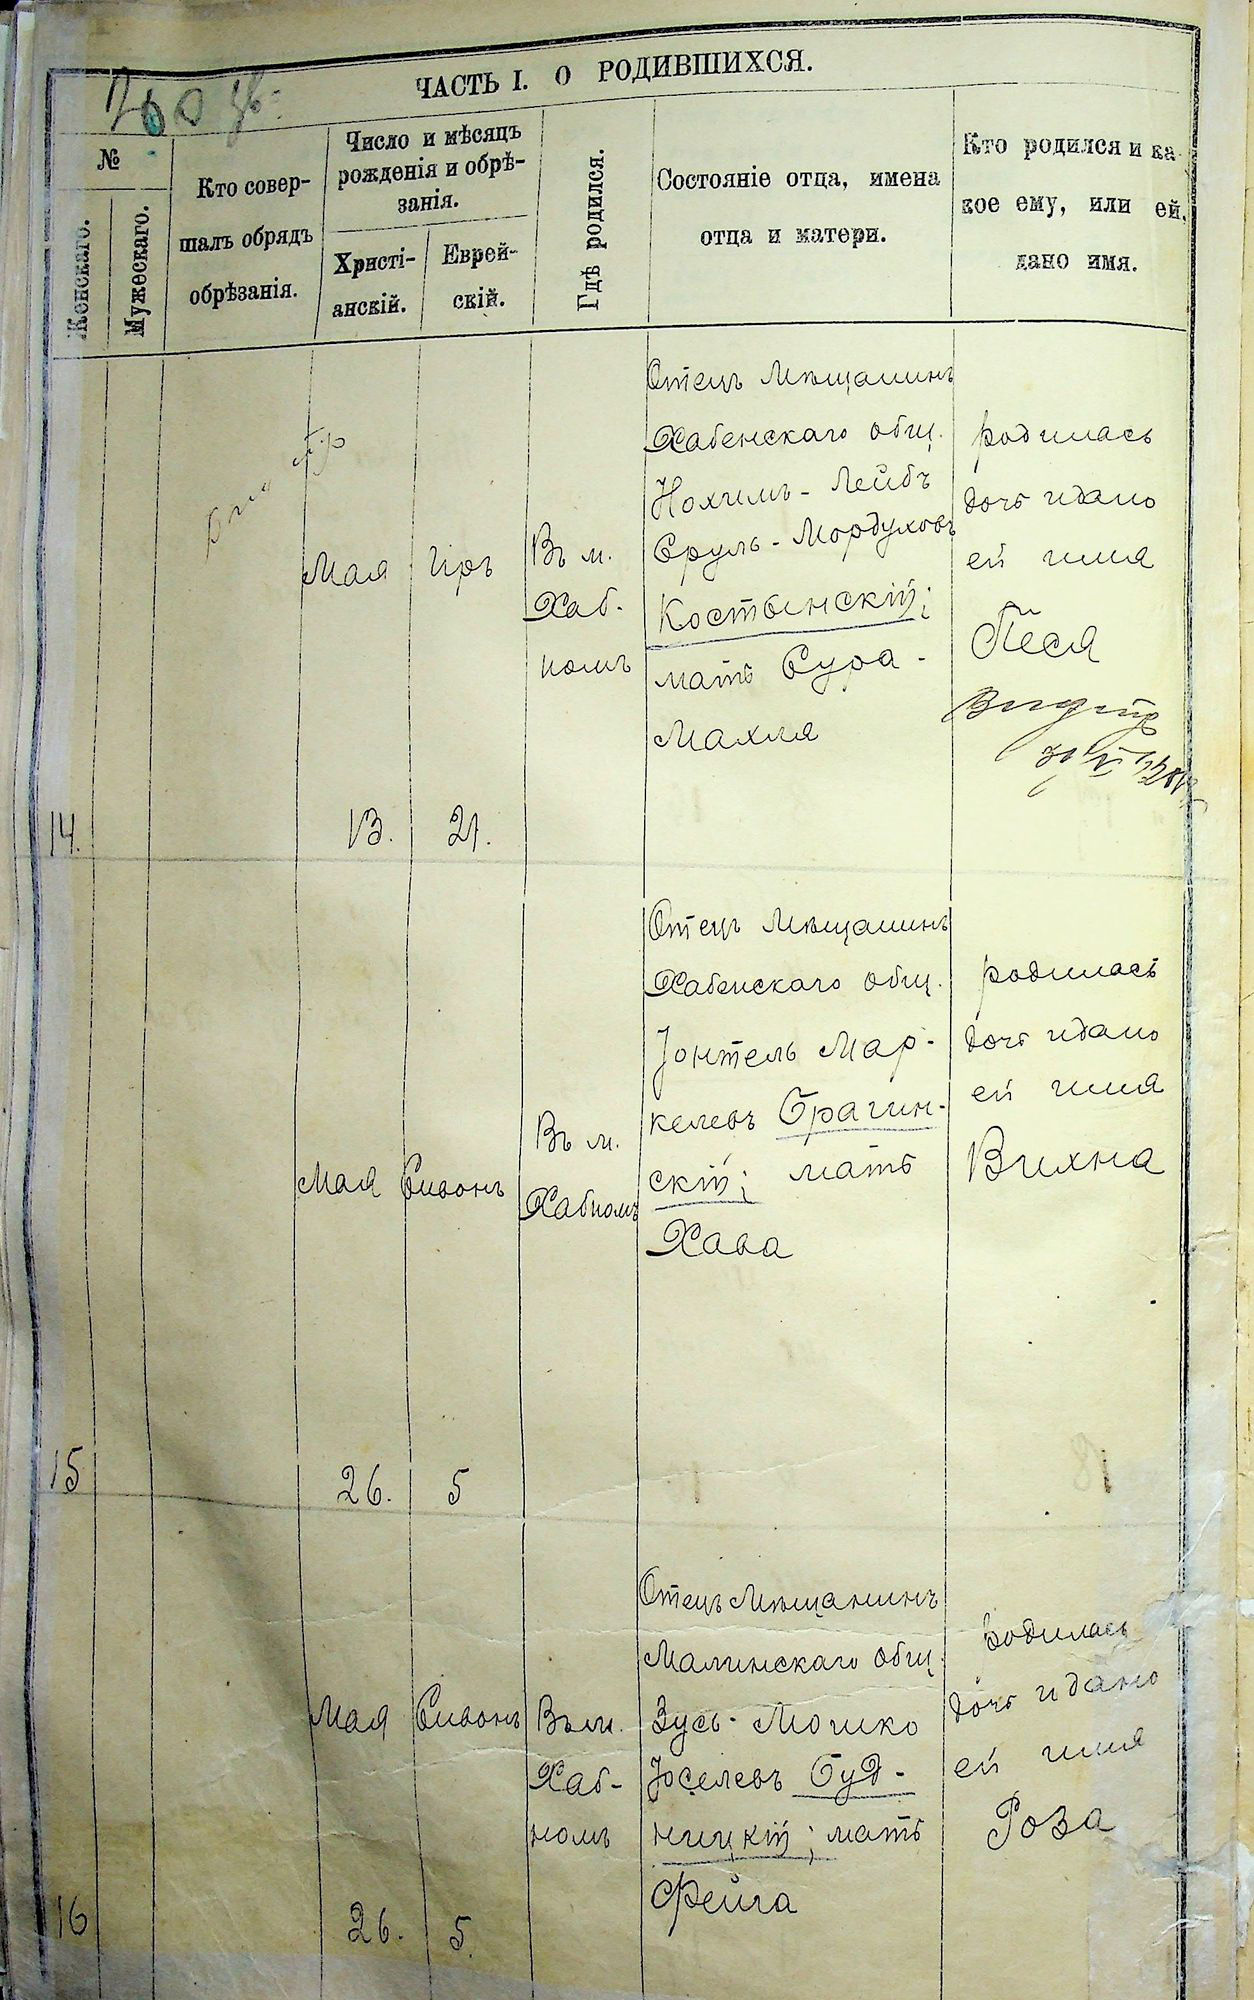 ЧАСТЬ I. О РОДИВШИХСЯ.
№
Женскаго.
Мужескаго.
Кто совер-
шалъ обрядъ
обрѣзанія.
Число и мѣсяцъ
рожденія и обрѣ-
занія.
Христі-
анскій.
Еврей-
скій.
Гдѣ родился.
Состояніе отца, имена
отца и матери.
Кто родился и ка-
кое ему, или ей,
дано имя.
14.
Мая
13.
Іръ
21.
Въ м.
Хаб-
номъ
Отецъ Мѣщанинъ
Хабенскаго общ.
Нохимъ-Лейбъ
Сруль-Мордуховъ
Костинскій;
мать Сура-
Махля
родилась
дочь и дано
ей имя
Песя
15
Мая
26.
Сивонъ
5
Въ м.
Хабномъ
Отецъ Мѣщанинъ
Хабенскаго общ.
Іонтель Мар-
келевъ Брагин-
скій; мать
Хава
родилась
дочь и дано
ей имя
Вихна
16
Мая
26.
Сивонъ
5.
Въ м.
Хаб-
номъ
Отецъ Мѣщанинъ
Малинскаго общ.
Зусь-Мошко
Іоселевъ Буд-
ницкій; мать
Фейга
родилась
дочь и дано
ей имя
Роза